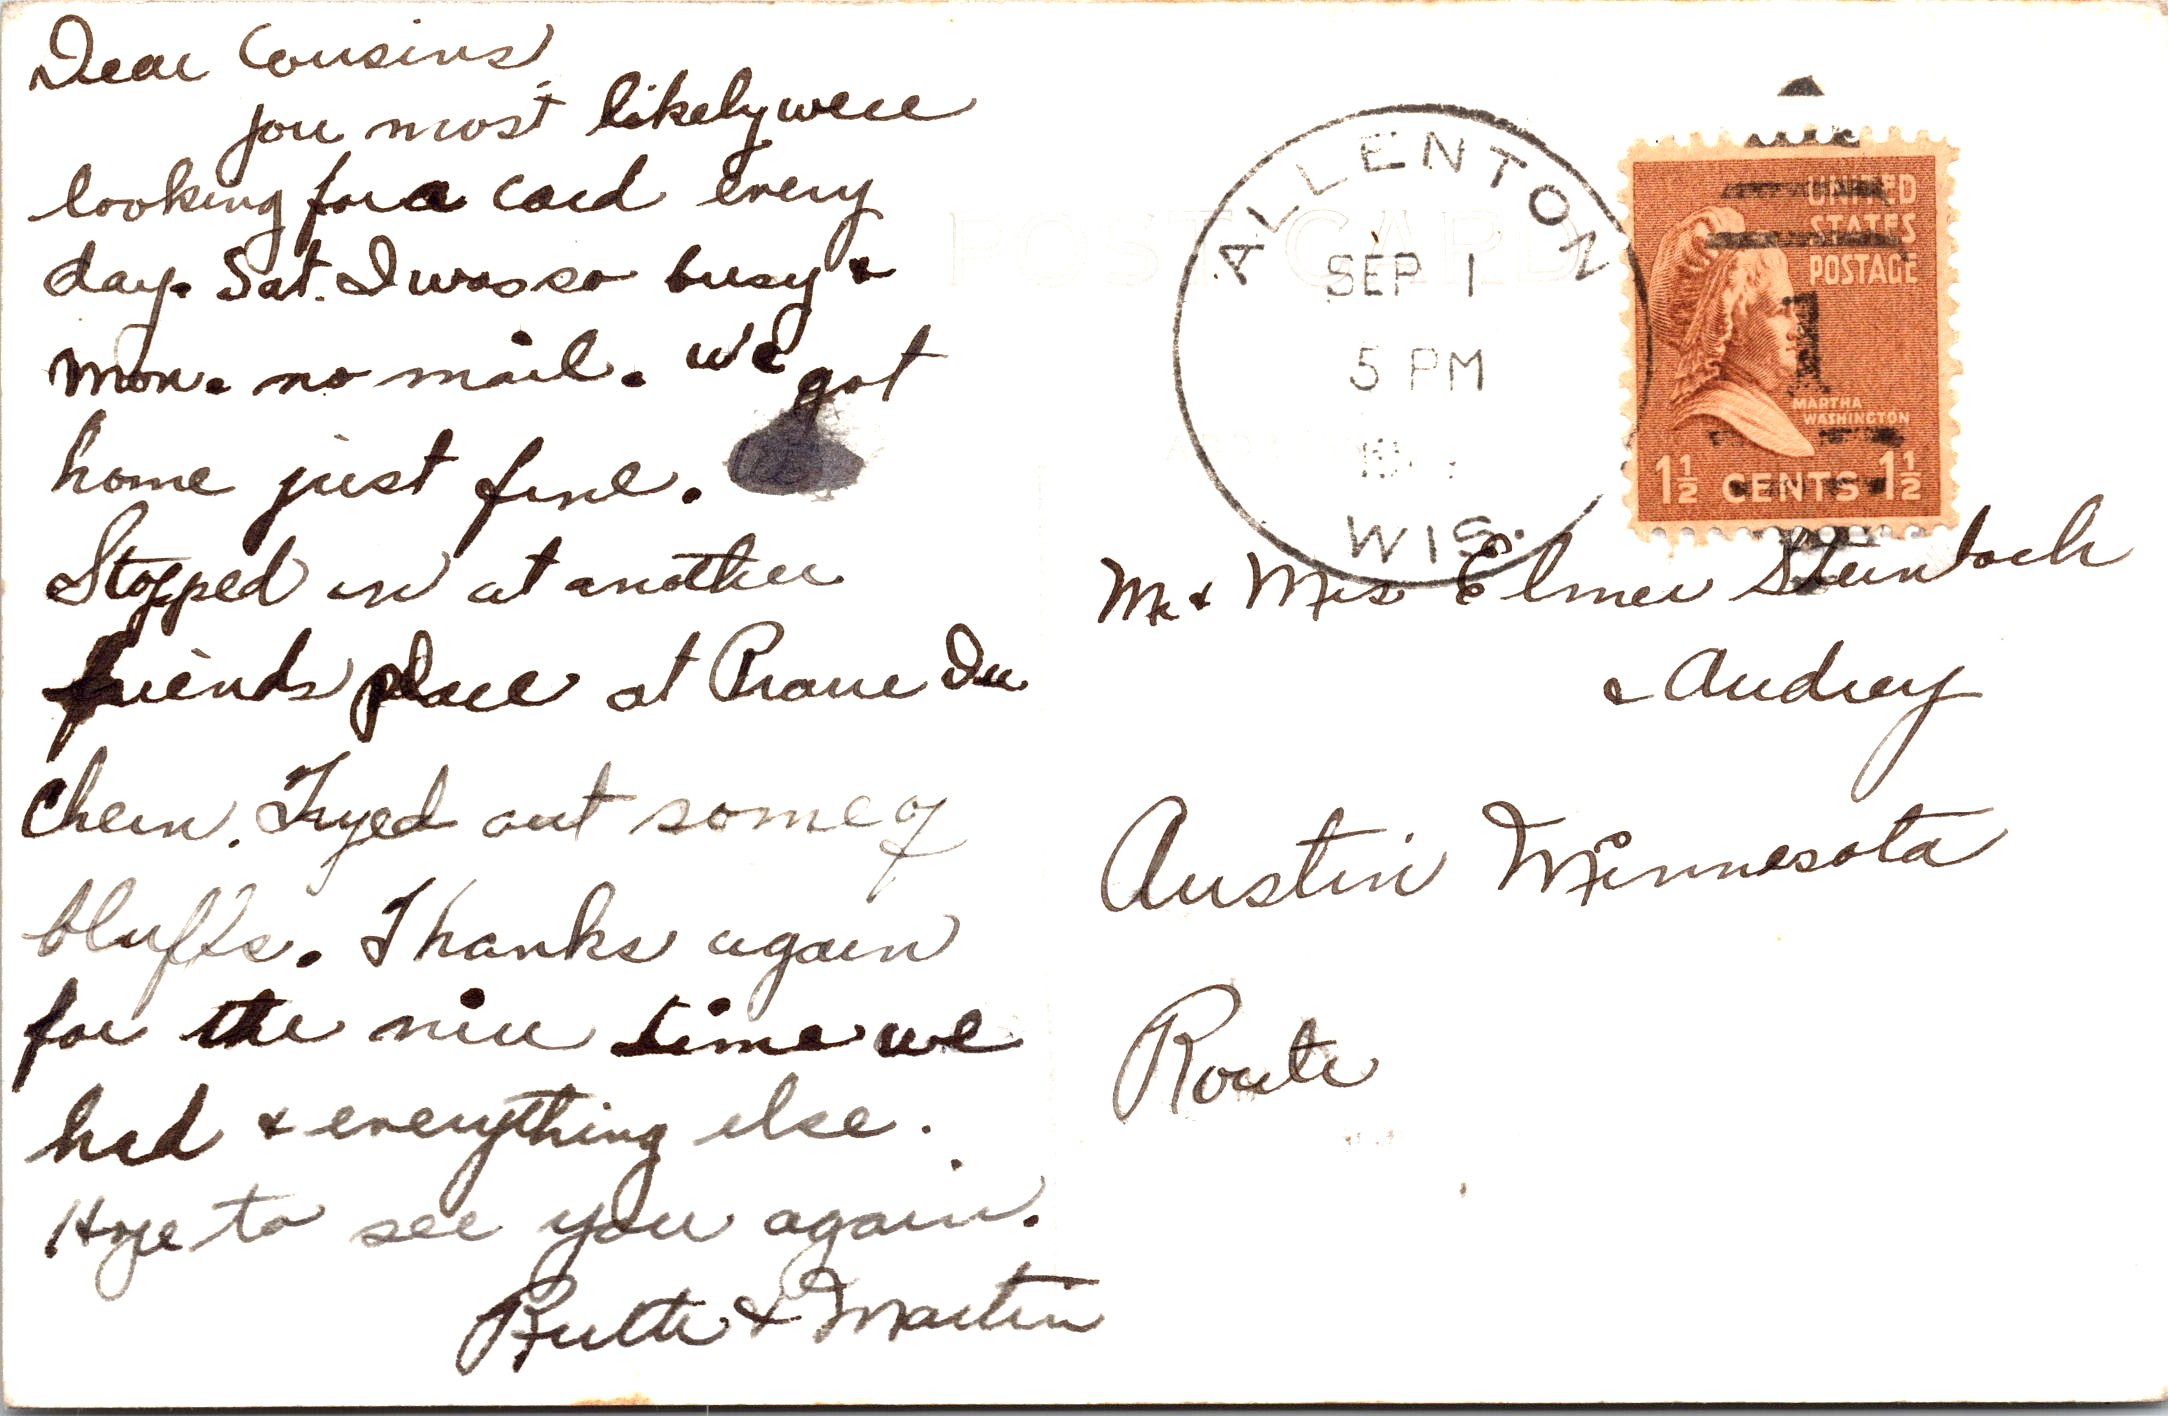 Dear Cousins,
you most likely were
looking for a card every
day. Sat. I was so busy &
Mon. no mail. We got
home just fine.
Stopped in at another
friends place at Prarie Du
Chein. Tryed out some of
bluffs. Thanks again
for the nice time we
had & everything else.
Hope to see you again.
Ruth & Martin
POST CARD
ALLENTON
SEP 1
5 PM
WIS.
UNITED
STATES
POSTAGE
MARTHA
WASHINGTON
1½ CENTS 1½
Mr & Mrs Elmer Steinbach
& Audrey
Austin Minnesota
Route